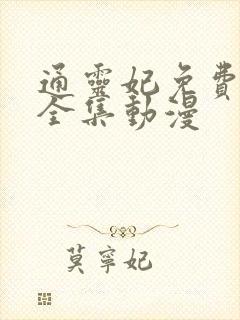 通靈妃免費
全集動漫
莫寧妃